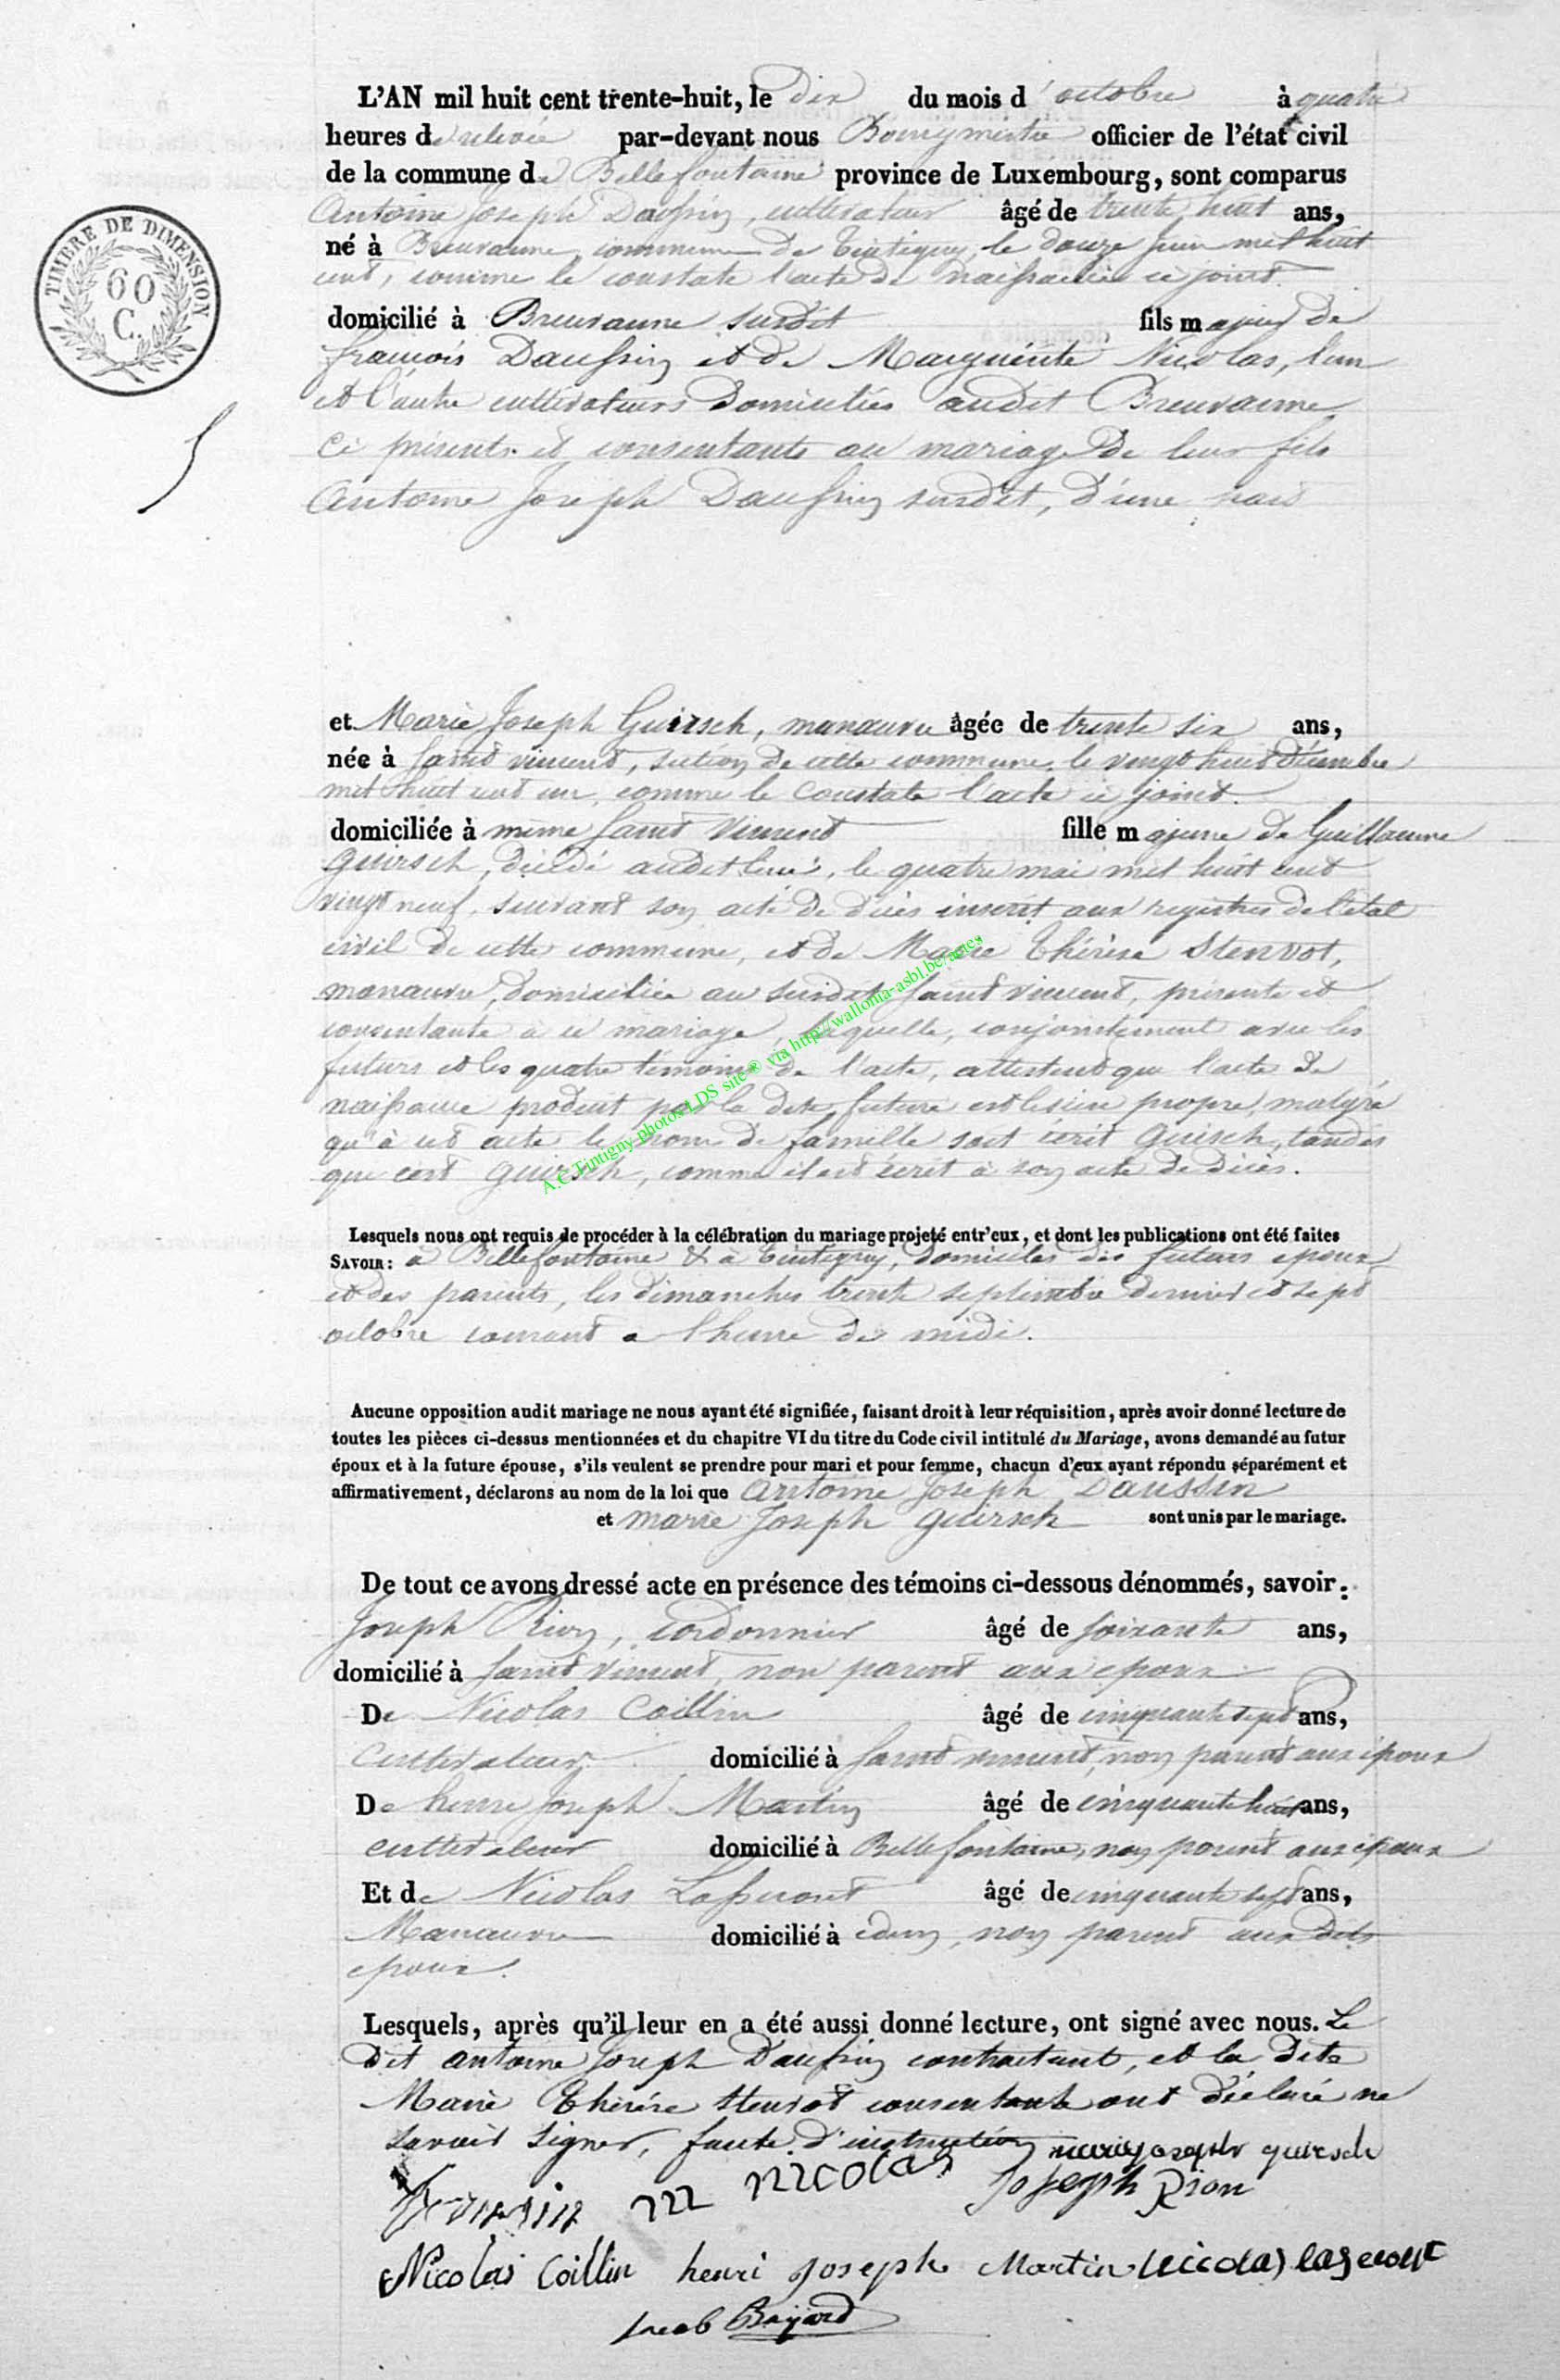 L'AN mil huit cent trente-huit, le dix du mois d'octobre à quatre
heures de relevée par-devant nous Bourgmestre officier de l'état civil
de la commune de Bellefontaine province de Luxembourg, sont comparus
TIMBRE DE DIMENSION
60
C.
Antoine Joseph Daussin, cultivateur âgé de trente huit ans,
né à Breuvanne, commune de Tintigny, le douze juin mil huit
cent, comme le constate l'acte de naissance ci joint.
domicilié à Breuvanne susdit fils majeur de
françois Daussin et de Marguerite Nicolas, l'un
et l'autre cultivateurs domiciliés audit Breuvanne
ci présents et consentants au mariage de leur fils
Antoine Joseph Daussin susdit, d'une part
et Marie Joseph Guirsch, manœuvre âgée de trente six ans,
née à Saint vincent, section de cette commune, le vingt huit décembre
mil huit cent un, comme le constate l'acte ci joint.
domiciliée à même Saint Vincent fille majeure de Guillaume
Guirsch, décédé audit lieu, le quatre mai mil huit cent
vingt neuf, suivant son acte de décès inscrit aux registres de l'état
civil de cette commune, et de Marie Thérèse Stenvot,
manœuvre, domiciliée au susdit Saint vincent, présente et
consentante à ce mariage, laquelle, conjointement avec les
futurs et les quatre témoins de l'acte, attestent que l'acte de
naissance produit par la dite future est le sien propre, malgré
qu'à cet acte le nom de famille soit écrit Guisch, tandis
que c'est Guirsch, comme il est écrit à son acte de décès.
A.C Tintigny photos LDS site® via http://wallonia-asbl.be/actes
Lesquels nous ont requis de procéder à la célébration du mariage projeté entr'eux, et dont les publications ont été faites
SAVOIR: à Bellefontaine & à Tintigny, domiciles des futurs epoux
et des parents, les dimanches trente septembre dernier et sept
octobre courant a l'heure de midi.
Aucune opposition audit mariage ne nous ayant été signifiée, faisant droit à leur réquisition, après avoir donné lecture de
toutes les pièces ci-dessus mentionnées et du chapitre VI du titre du Code civil intitulé du Mariage, avons demandé au futur
époux et à la future épouse, s'ils veulent se prendre pour mari et pour femme, chacun d'eux ayant répondu séparément et
affirmativement, déclarons au nom de la loi que Antoine Joseph Daussin
et marie Joseph guirsch sont unis par le mariage.
De tout ce avons dressé acte en présence des témoins ci-dessous dénommés, savoir:
Joseph Rion, cordonnier âgé de soixante ans,
domicilié à Saint vincent, non parent aux epoux
De Nicolas Coillin âgé de cinquante sept ans,
cultivateur domicilié à Saint vincent, non parent aux epoux
De henri Joseph Martin âgé de cinquante huit ans,
cultivateur domicilié à Bellefontaine, non parent aux epoux
Et de Nicolas Lasseront âgé de cinquante sept ans,
Manœuvre domicilié à idem, non parent aux dits
epoux.
Lesquels, après qu'il leur en a été aussi donné lecture, ont signé avec nous. Le
dit antoine Joseph Daussin contractant, et la dite
Marie Thérèse Stenvot consentante ont déclaré ne
savoir signer, faute d'instruction marie joseph guirsch
m nicolas Joseph Rion
Nicolas Coillin henri Joseph Martin nicolas laseront
Jacob Bayard